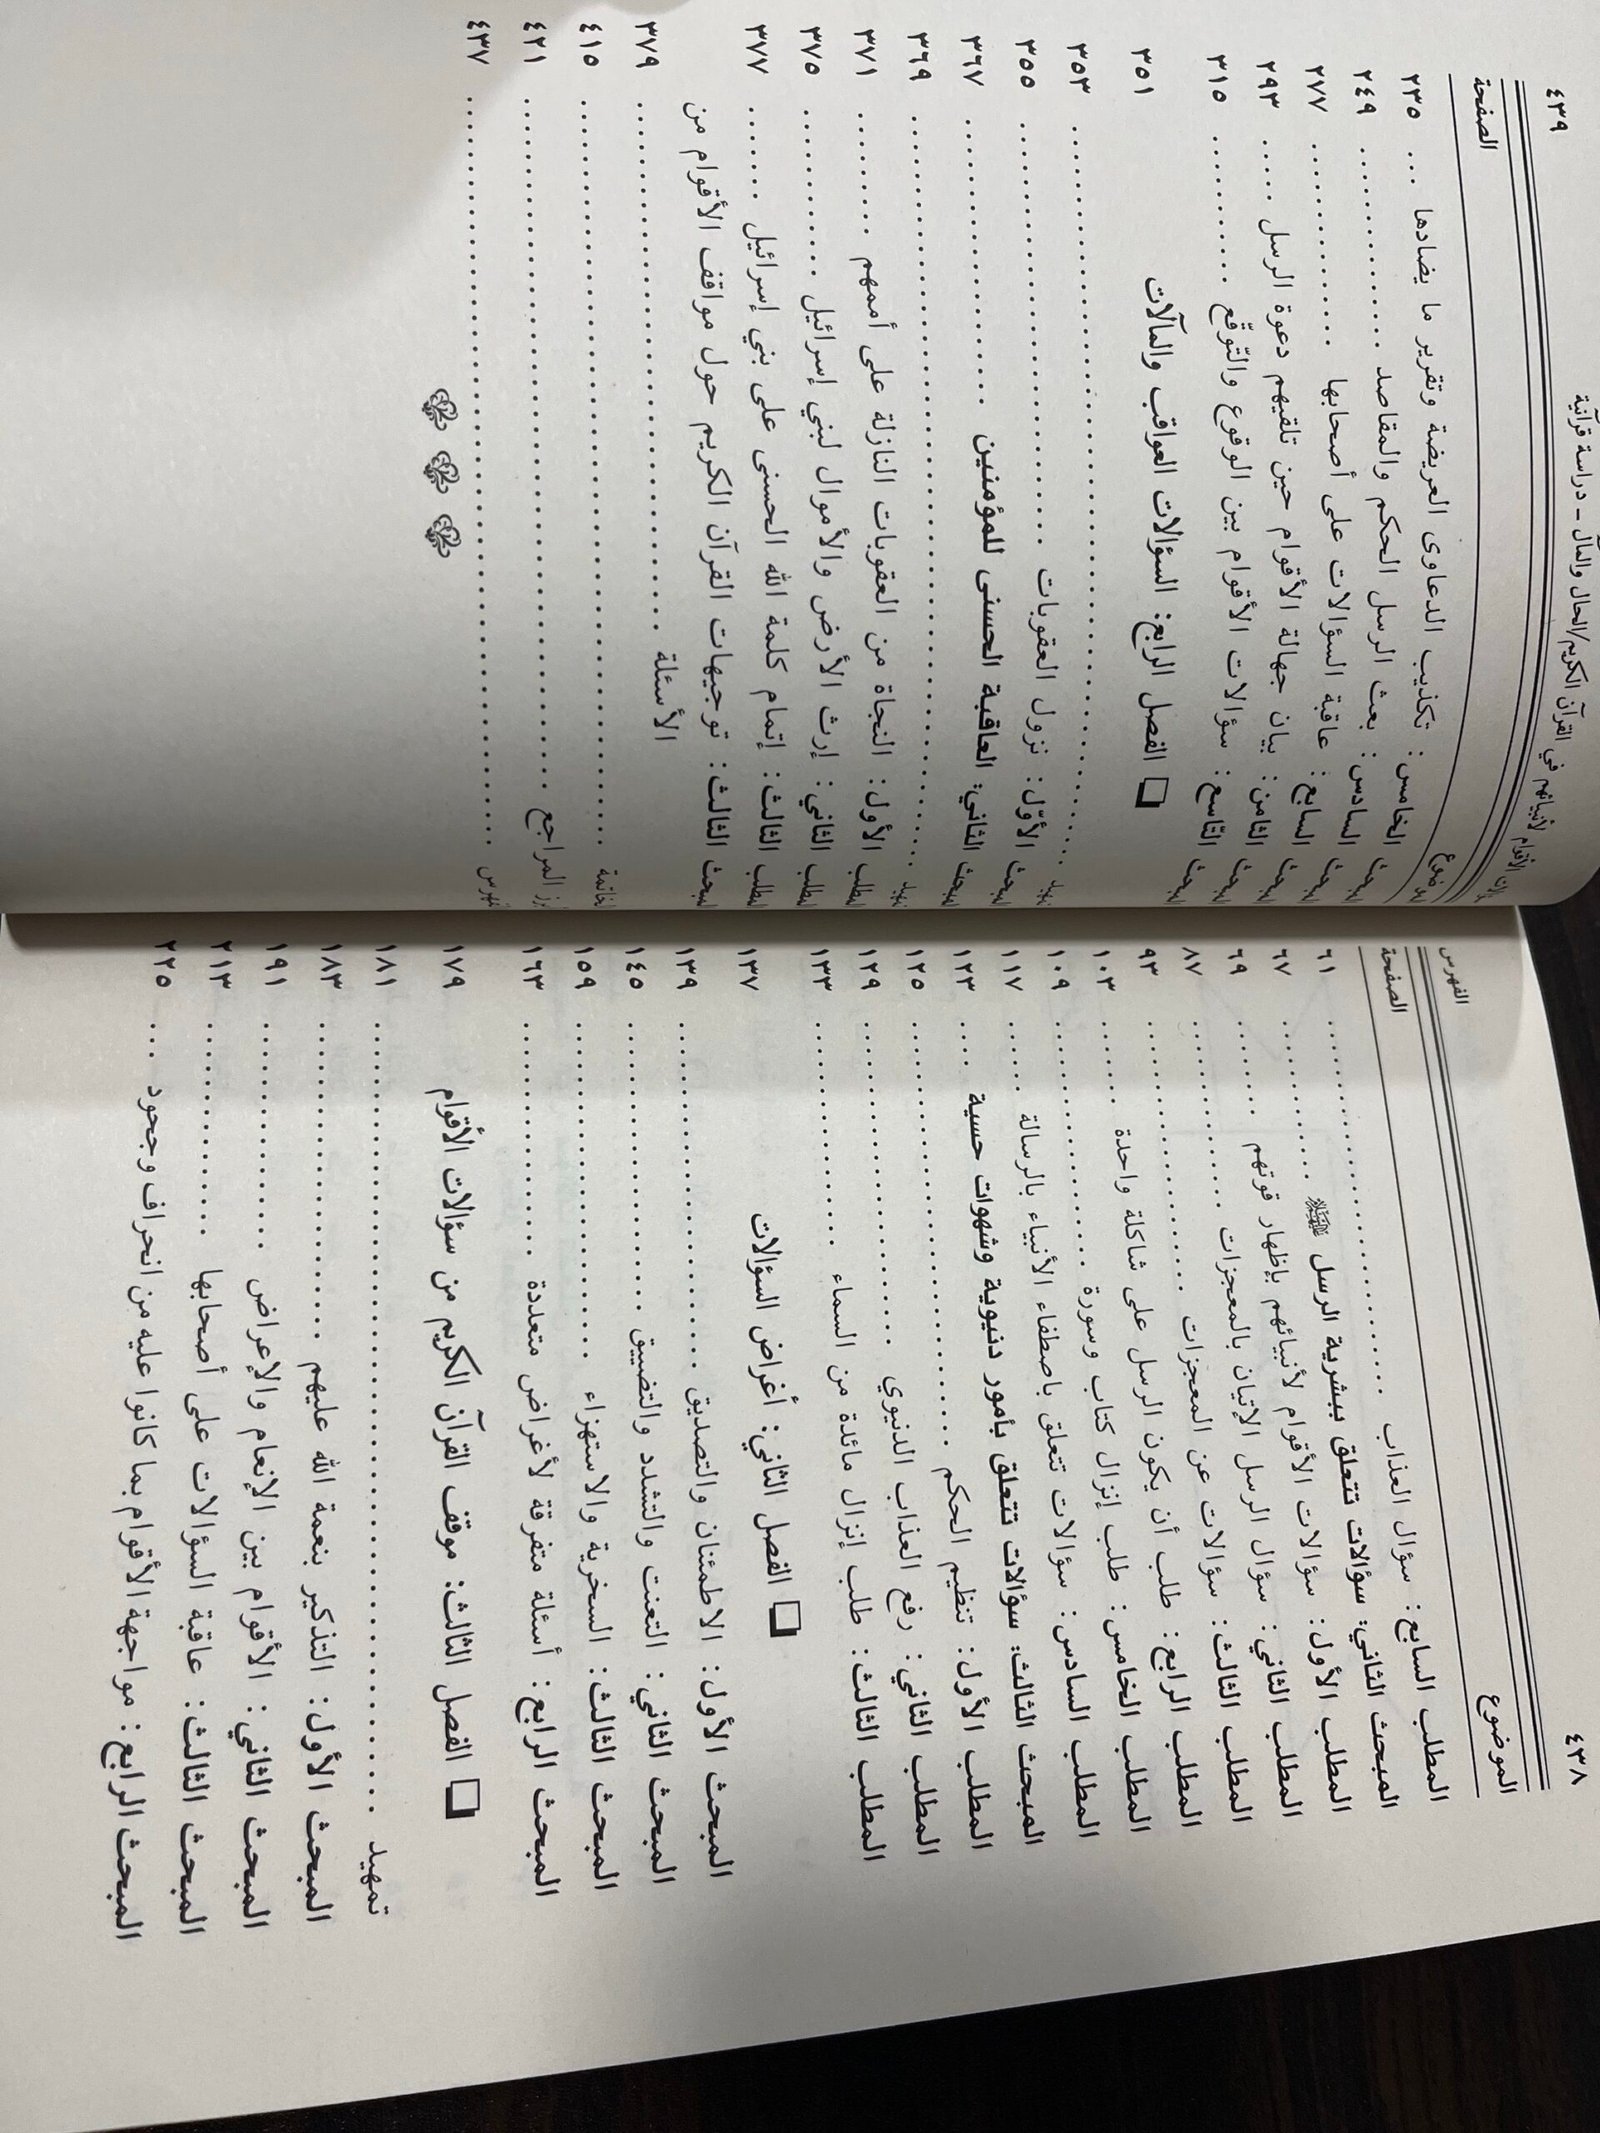 ٤٣٨
الفهرس
الموضوع
الصفحة
المطلب السابع: سؤال العذاب ........ ٦١
المبحث الثاني: سؤالات تتعلق ببشرية الرسل ﷺ ........ ٦٧
المطلب الأول: سؤالات الأقوام لأنبيائهم بإظهار قوتهم ........ ٦٩
المطلب الثاني: سؤال الرسل الإتيان بالمعجزات ........ ٨٧
المطلب الثالث: سؤالات عن المعجزات ........ ٩٣
المطلب الرابع: طلب أن يكون الرسل على شاكلة واحدة ........ ١٠٣
المطلب الخامس: طلب إنزال كتاب وسورة ........ ١٠٩
المطلب السادس: سؤالات تتعلق باصطفاء الأنبياء بالرسالة ........ ١١٧
المبحث الثالث: سؤالات تتعلق بأمور دنيوية وشهوات حسية ........ ١٢٣
المطلب الأول: تنظيم الحكم ........ ١٢٥
المطلب الثاني: رفع العذاب الدنيوي ........ ١٢٩
المطلب الثالث: طلب إنزال مائدة من السماء ........ ١٣٣
❑ الفصل الثاني: أغراض السؤالات ١٣٧
المبحث الأول: الاطمئنان والتصديق ........ ١٣٩
المبحث الثاني: التعنت والتشدد والتضييق ........ ١٤٥
المبحث الثالث: السخرية والاستهزاء ........ ١٥٩
المبحث الرابع: أسئلة متفرقة لأغراض متعددة ........ ١٦٣
❑ الفصل الثالث: موقف القرآن الكريم من سؤالات الأقوام ١٧٩
تمهيد ........ ١٨١
المبحث الأول: التذكير بنعمة الله عليهم ........ ١٨٣
المبحث الثاني: الأقوام بين الإنعام والإعراض ........ ١٩١
المبحث الثالث: عاقبة السؤالات على أصحابها ........ ٢١٣
المبحث الرابع: مواجهة الأقوام بما كانوا عليه من انحراف وجحود ... ٢٢٥
الأقوام لأنبيائهم في القرآن الكريم/الحال والمآل - دراسة قرآنية
٤٣٩
الصفحة
الخامس: تكذيب الدعاوى العريضة وتقرير ما يضادها ... ٢٣٥
السادس: بعث الرسل الحكم والمقاصد ........ ٢٤٩
السابع: عاقبة السؤالات على أصحابها ........ ٢٧٧
الثامن: بيان جهالة الأقوام حين تلقيهم دعوة الرسل ..... ٢٩٣
التاسع: سؤالات الأقوام بين الوقوع والتوقّع ........ ٣١٥
❑ الفصل الرابع: السؤالات العواقب والمآلات ٣٥١
تمهيد ........ ٣٥٣
المبحث الأوّل: نزول العقوبات ........ ٣٥٥
المبحث الثاني: العاقبة الحسنى للمؤمنين ........ ٣٦٧
تمهيد ........ ٣٦٩
المطلب الأول: النجاة من العقوبات النازلة على أممهم ........ ٣٧١
المطلب الثاني: إرث الأرض والأموال لبني إسرائيل ........ ٣٧٥
المطلب الثالث: إتمام كلمة الله الحسنى على بني إسرائيل ...... ٣٧٧
المبحث الثالث: توجيهات القرآن الكريم حول مواقف الأقوام من
الأسئلة ........ ٣٧٩
الخاتمة ........ ٤١٥
المراجع ........ ٤٢١
الفهرس ........ ٤٣٧